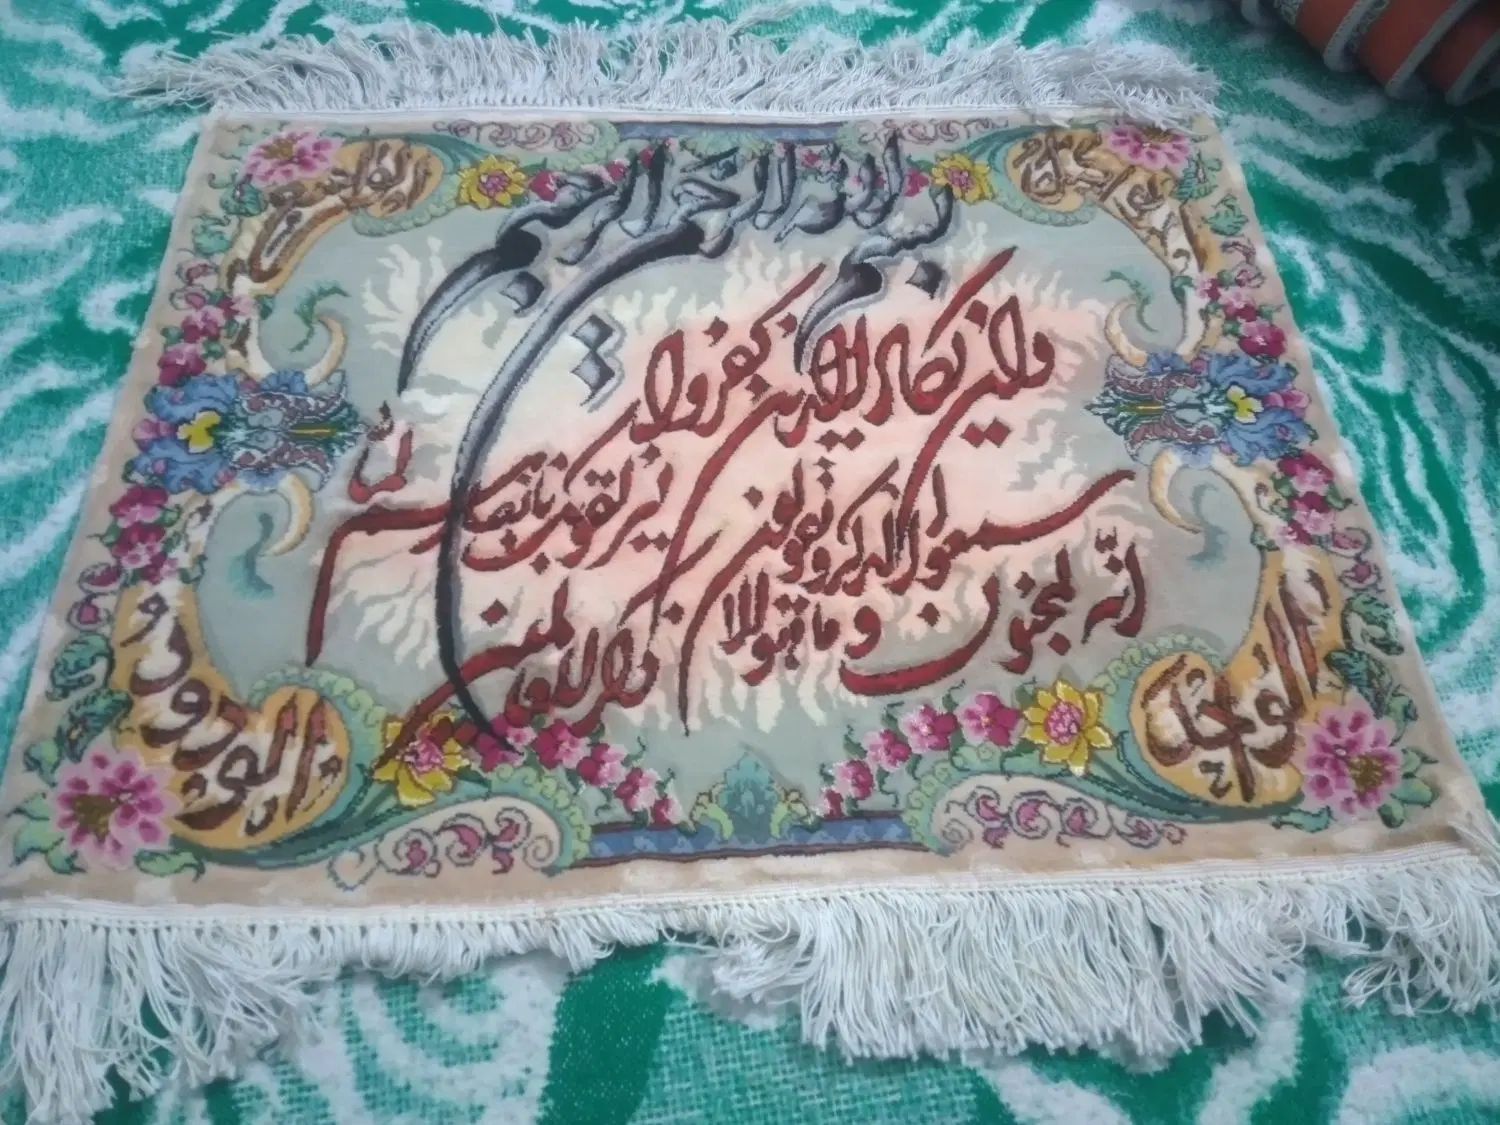 بسم الله الرحمن الرحیم
وان یکاد الذین کفروا
لیزلقونک بابصارهم لما
سمعوا الذکر و یقولون
انه لمجنون و ما هو الا
ذکر للعالمین
الودود